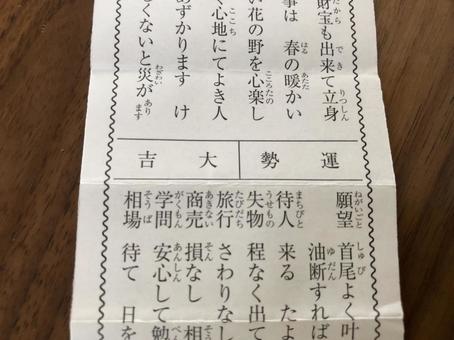 財宝も出来て立身
事は 春の暖かい
い花の野を心楽し
く心地にてよき人
あずかります け
くないと災があります
運勢
大吉
願望 首尾よく叶
油断すれば
待人 来る たよ
失物 程なく出て
旅行 さわりなし
商売 損なし 相
学問 安心して勉
相場 待て 日を